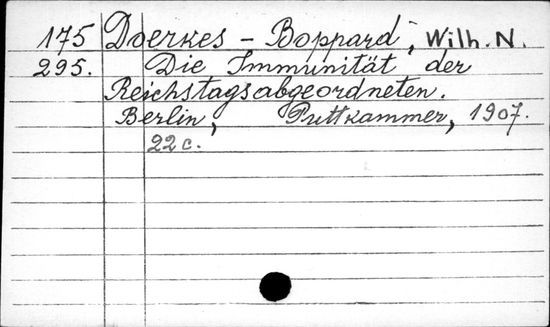 175 Doerkes - Boppard, Wilh. N.
295. Die Immunität der
Reichstagsabgeordneten.
Berlin, Puttkammer, 1907.
22 c.